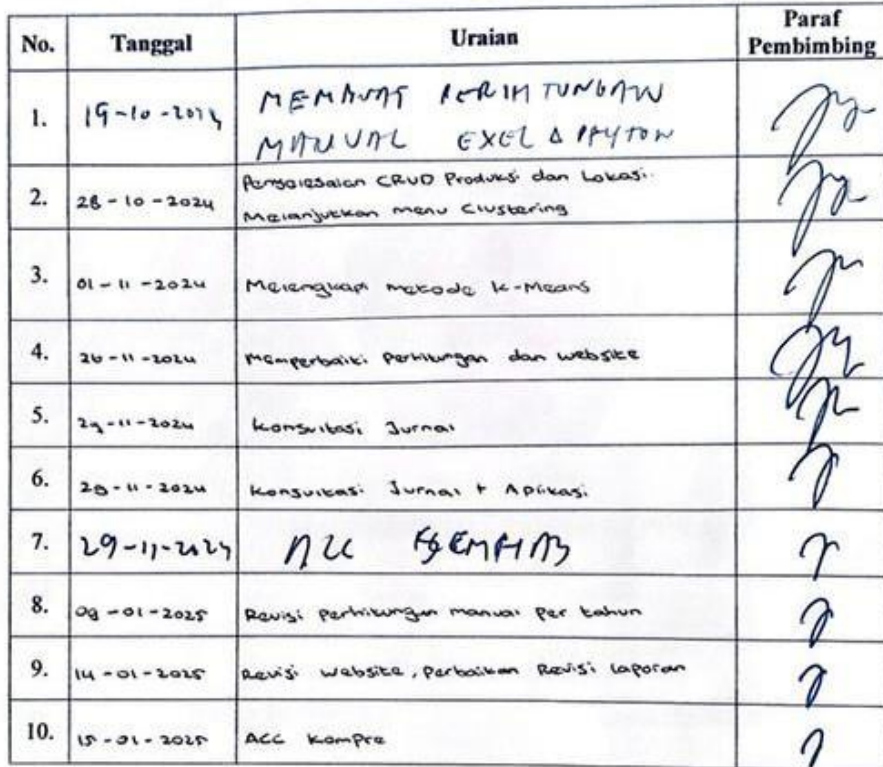 No. Tanggal Uraian Paraf Pembimbing
1. 19-10-2024 MEMBUAT PERHITUNGAN
MANUAL EXEL & PAYTON
2. 28-10-2024 Penyelesaian CRUD Produksi dan Lokasi.
Melanjutkan menu Clustering
3. 01-11-2024 Melengkapi metode K-Means
4. 26-11-2024 Memperbaiki Perhitungan dan website
5. 27-11-2024 Konsultasi Jurnal
6. 28-11-2024 Konsultasi Jurnal + Aplikasi
7. 29-11-2024 ACC
8. 09-01-2025 Revisi perhitungan manual per tahun
9. 14-01-2025 Revisi website, Perbaikan Revisi laporan
10. 15-01-2025 ACC Kompre